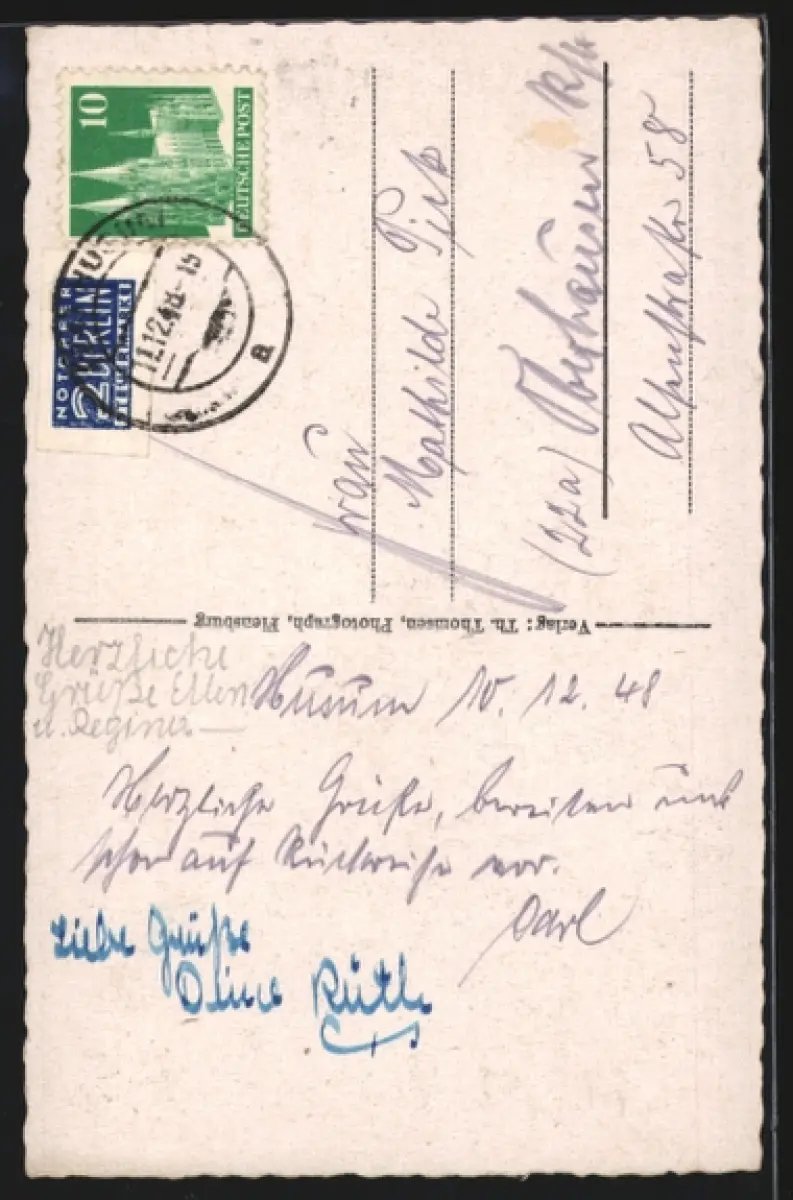 10
DEUTSCHE POST
NOTOPFER
2 BERLIN
STEUERMARKE
HUSUM
11.12.48-15
a
Frau
Mathilde
(22a) Oberhausen Rhl
58
Verlag: Th. Thomsen, Photograph, Flensburg
Herzliche
Grüße Ellen
u. Regina
Husum 10. 12. 48
Herzliche Grüße, bereiten uns
schon auf Rückreise vor.
Carl
Liebe Grüße
Deine Ruth